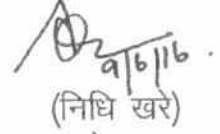 9/6/16.
(निधि खरे)